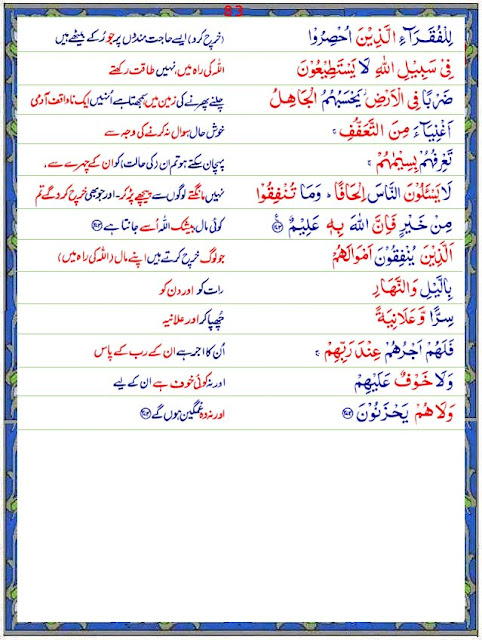 83
لِلْفُقَرَآءِ الَّذِيْنَ اُحْصِرُوْا (خرچ کرو) ایسے حاجت مندوں پر جو رُکے بیٹھے ہیں
فِيْ سَبِيْلِ اللّٰهِ لَا يَسْتَطِيْعُوْنَ اللہ کی راہ میں، نہیں طاقت رکھتے
ضَرْبًا فِي الْاَرْضِ ز يَحْسَبُهُمُ الْجَاهِلُ چلنے پھرنے کی زمین میں سمجھتا ہے اُنہیں ایک ناواقف آدمی
اَغْنِيَآءَ مِنَ التَّعَفُّفِ ۚ خوش حال سوال نہ کرنے کی وجہ سے
تَعْرِفُهُمْ بِسِيْمٰهُمْ ۚ پہچان سکتے ہو تم ان (کی حالت) کو ان کے چہرے سے،
لَا يَسْـَٔلُوْنَ النَّاسَ اِلْحَافًا ؕ وَمَا تُنْفِقُوْا نہیں مانگتے لوگوں سے پیچھے پڑ کر۔ اور جو بھی خرچ کرو گے تم
مِنْ خَيْرٍ فَاِنَّ اللّٰهَ بِهٖ عَلِيْمٌ ﴿۲۷۳﴾ کوئی مال بیشک اللہ اُسے جانتا ہے ﴿۲۷۳﴾
اَلَّذِيْنَ يُنْفِقُوْنَ اَمْوَالَهُمْ جو لوگ خرچ کرتے ہیں اپنے مال (اللہ کی راہ میں)
بِالَّيْلِ وَالنَّهَارِ رات کو اور دن کو
سِرًّا وَّعَلَانِيَةً چُھپا کر اور علانیہ
فَلَهُمْ اَجْرُهُمْ عِنْدَ رَبِّهِمْ ۚ اُن کا اجر ہے ان کے رب کے پاس
وَلَا خَوْفٌ عَلَيْهِمْ اور نہ کوئی خوف ہے ان کے لیے
وَلَا هُمْ يَحْزَنُوْنَ ﴿۲۷۴﴾ اور نہ وہ غمگین ہوں گے ﴿۲۷۴﴾